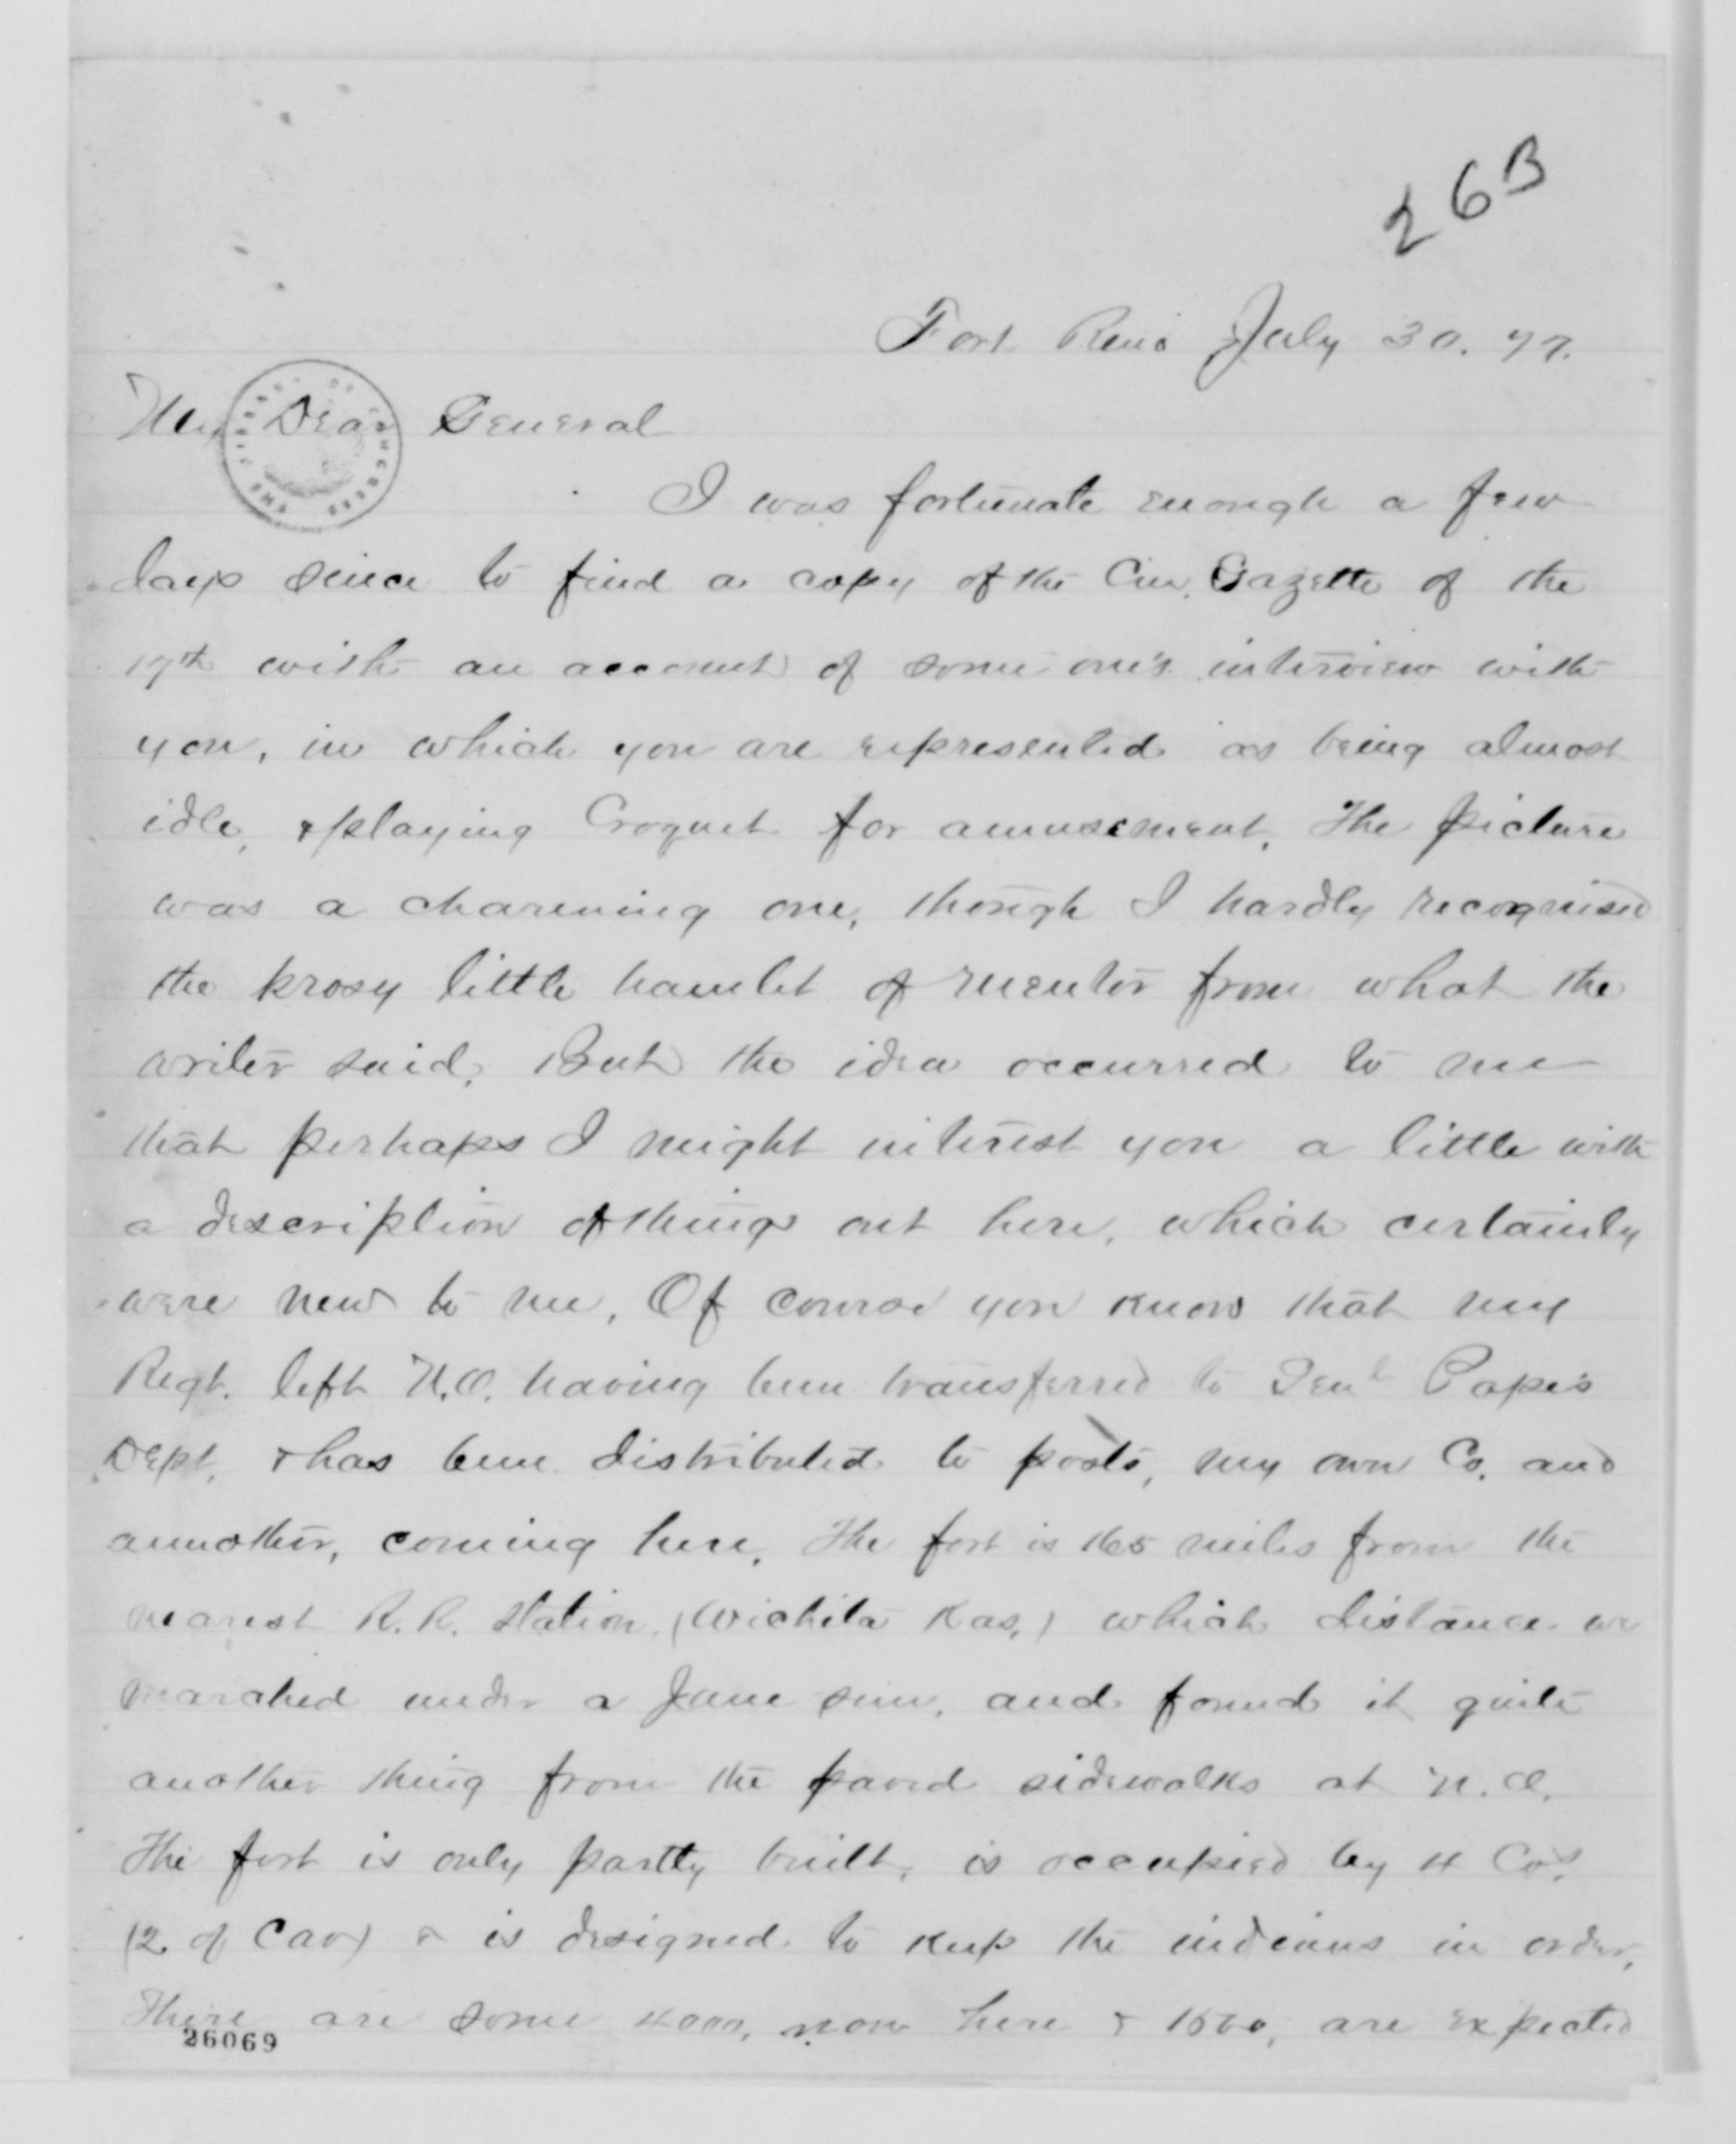 26B
Fort Reno July 30. 77.
My Dear General
I was fortunate enough a few
days since to find a copy of the Cin. Gazette of the
17th with an account of some one's interview with
you, in which you are represented as being almost
idle, & playing Croquet for amusement. The picture
was a charming one, though I hardly recognised
the little hamlet of mentor from what the
writer said. But the idea occurred to me
that perhaps I might interest you a little with
a description of things out here, which certainly
were new to me. Of course you know that my
Regt. left N.O. having been transferred to Genl Pope's
Dept. & has been distributed to posts, my own Co. and
annother, coming here. The fort is 165 miles from the
nearest R.R. station (Wichita Kas.) which distance we
marched under a June sun, and found it quite
another thing from the paved sidewalks at N.O.
The fort is only partly built, is occupied by 4 Cos.
(2 of Cav) & is designed to keep the indians in order.
There are some 4000, now here & 1500, are expected
26069
THE LIBRARY OF CONGRESS